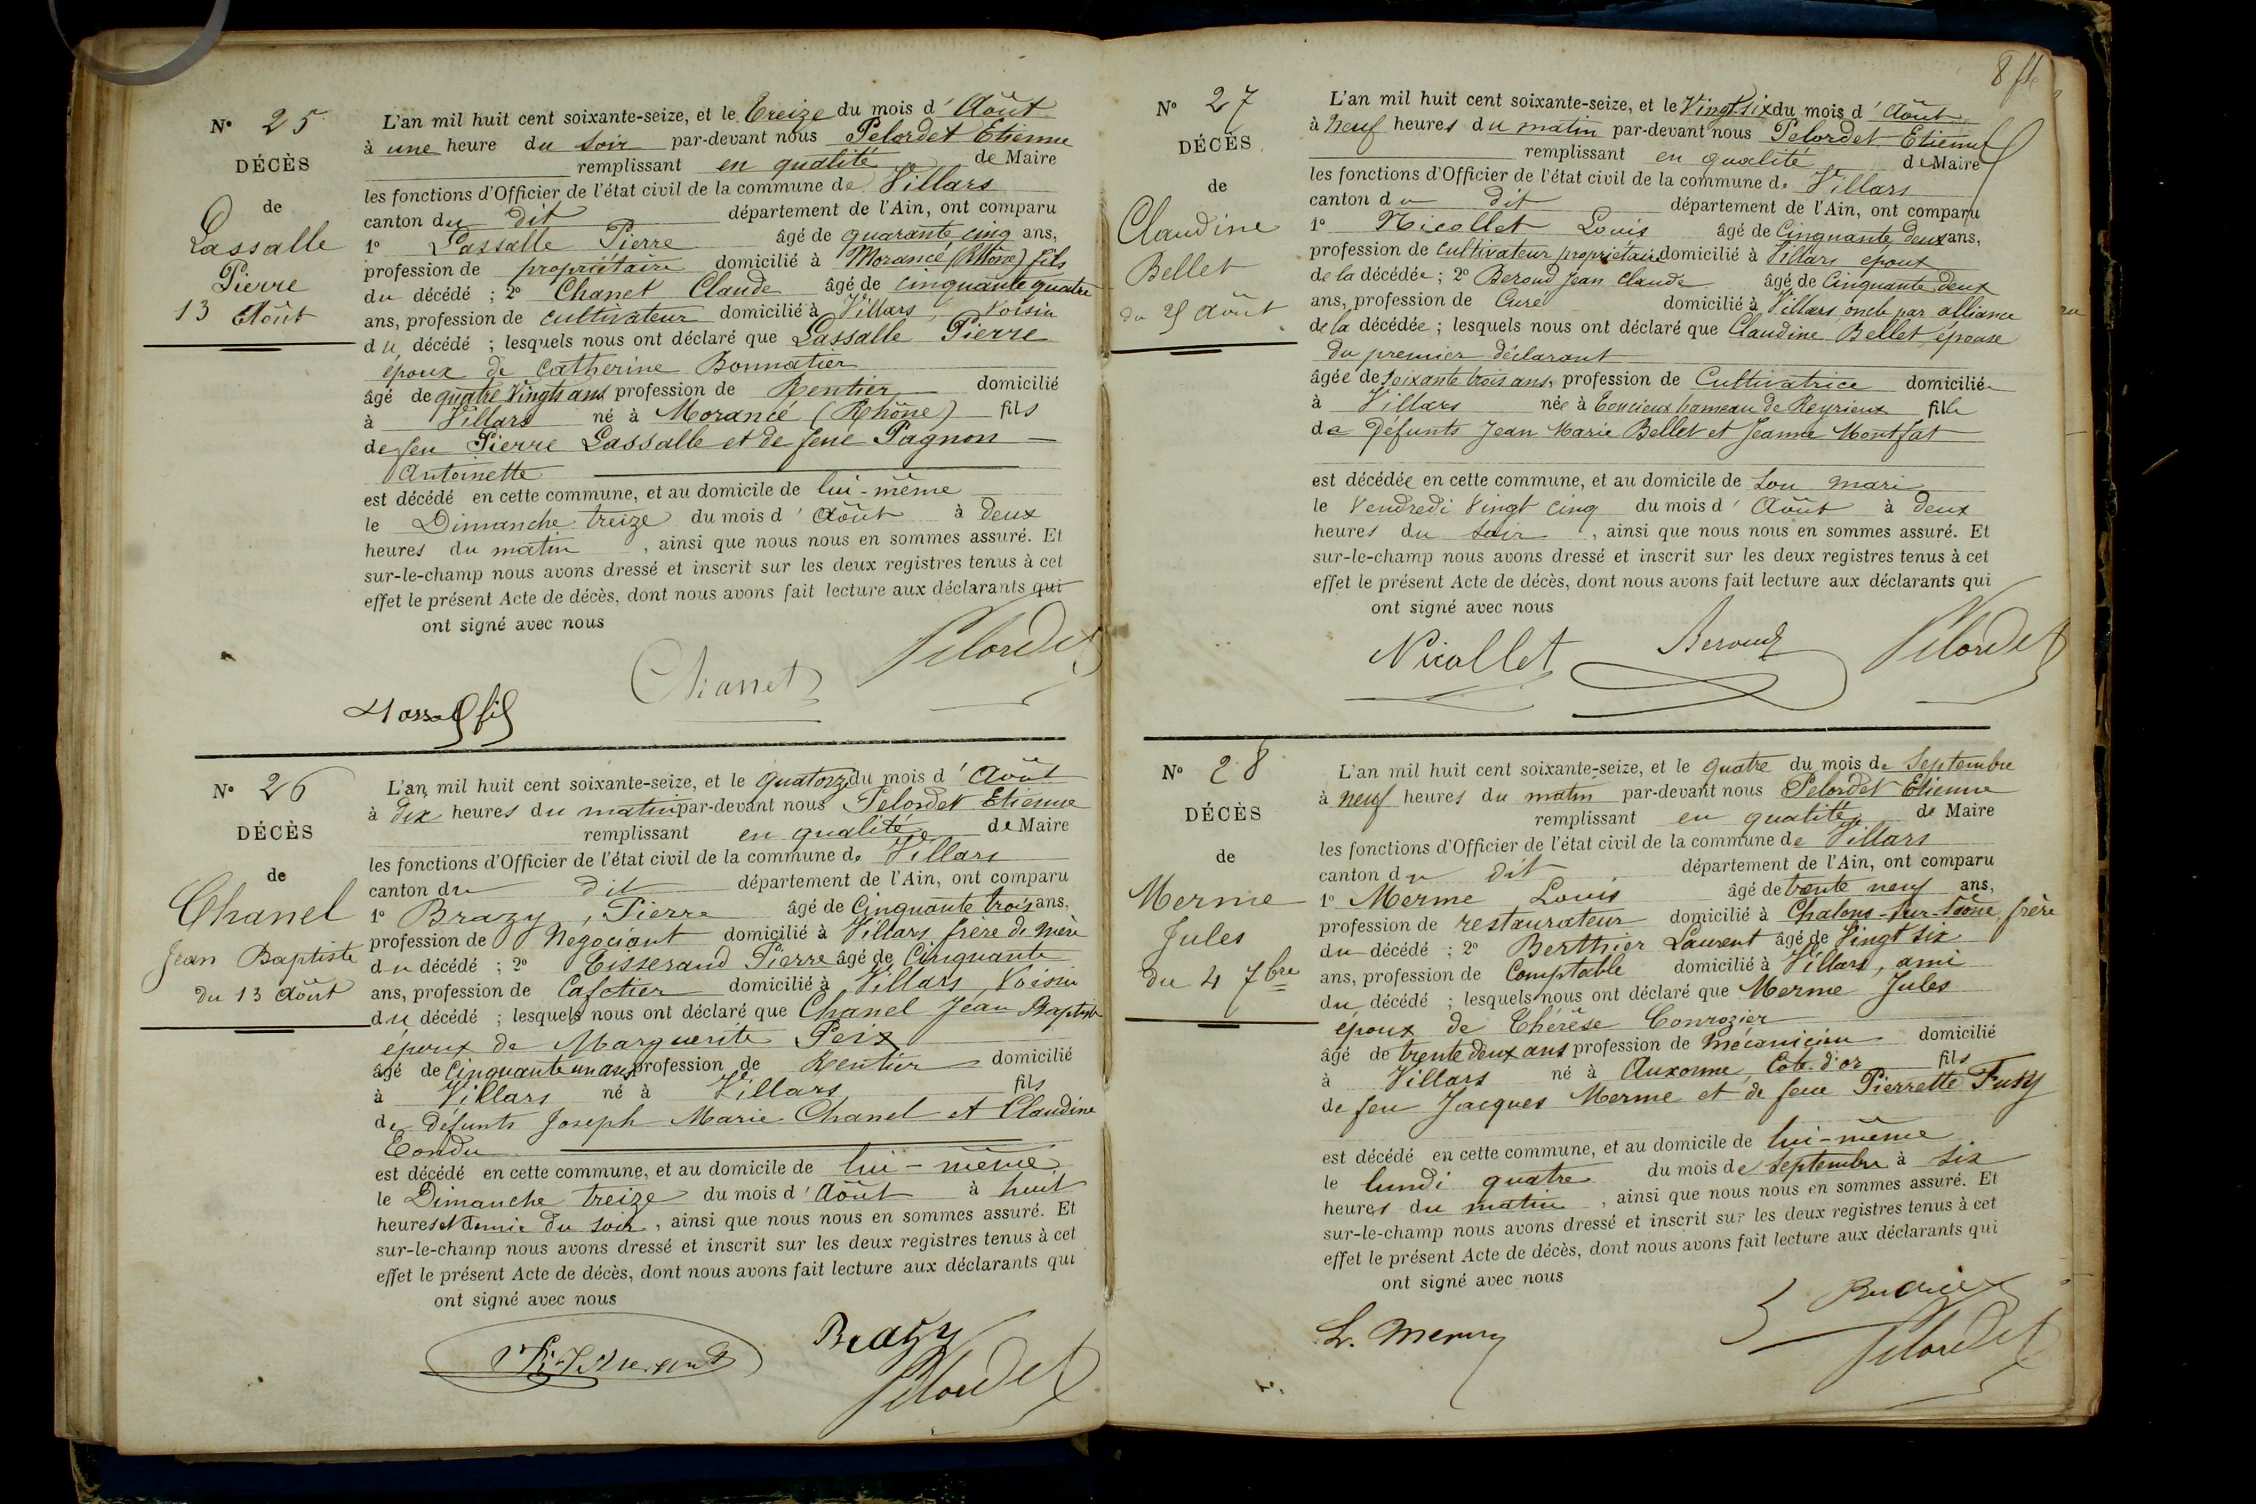 N° 25
DÉCÈS
de
Lassalle
Pierre
13 Août
L'an mil huit cent soixante-seize, et le treize du mois d'Août
à une heure du soir par-devant nous Pelordet Etienne
remplissant en qualité de Maire
les fonctions d'Officier de l'état civil de la commune de Villars
canton du dit département de l'Ain, ont comparu
1° Lassalle Pierre âgé de quarante cinq ans,
profession de propriétaire domicilié à Morancé (Rhône) fils
du décédé ; 2° Chanel Claude âgé de cinquante quatre
ans, profession de cultivateur domicilié à Villars, Voisin
du décédé ; lesquels nous ont déclaré que Lassalle Pierre
époux de Catherine Bonnatier
âgé de quatre Vingts ans profession de Rentier domicilié
à Villars né à Morancé (Rhône) fils
de feu Pierre Lassalle et de feue Pagnon
Antoinette
est décédé en cette commune, et au domicile de lui-même
le Dimanche treize du mois d'Août à deux
heures du matin, ainsi que nous nous en sommes assuré. Et
sur-le-champ nous avons dressé et inscrit sur les deux registres tenus à cet
effet le présent Acte de décès, dont nous avons fait lecture aux déclarants qui
ont signé avec nous
Pelordet
Chanel
Lassall fils
N° 26
DÉCÈS
de
Chanel
Jean Baptiste
du 13 Août
L'an mil huit cent soixante-seize, et le quatorze du mois d'Août
à dix heures du matin par-devant nous Pelordet Etienne
remplissant en qualité de Maire
les fonctions d'Officier de l'état civil de la commune de Villars
canton du dit département de l'Ain, ont comparu
1° Brazy, Pierre âgé de Cinquante trois ans,
profession de Négociant domicilié à Villars frère de mère
du décédé ; 2° Tisserand Pierre âgé de Cinquante
ans, profession de Cafetier domicilié à Villars, Voisin
du décédé ; lesquels nous ont déclaré que Chanel Jean Baptiste
époux de Marguerite Peix
âgé de Cinquante un ans profession de Rentier domicilié
à Villars né à Villars fils
de défunts Joseph Marie Chanel et Claudine
Tondu
est décédé en cette commune, et au domicile de lui-même
le Dimanche treize du mois d'Août à huit
heures et demie du soir, ainsi que nous nous en sommes assuré. Et
sur-le-champ nous avons dressé et inscrit sur les deux registres tenus à cet
effet le présent Acte de décès, dont nous avons fait lecture aux déclarants qui
ont signé avec nous
Brazy
Tisserand
Pelordet
8
N° 27
DÉCÈS
de
Claudine
Bellet
du 25 Août
L'an mil huit cent soixante-seize, et le Vingt-six du mois d'Août
à neuf heures du matin par-devant nous Pelordet Etienne
remplissant en qualité de Maire
les fonctions d'Officier de l'état civil de la commune de Villars
canton du dit département de l'Ain, ont comparu
1° Nicollet Louis âgé de Cinquante deux ans,
profession de cultivateur propriétaire domicilié à Villars epoux
de la décédée ; 2° Beroud Jean Claude âgé de Cinquante deux
ans, profession de Curé domicilié à Villars, oncle par alliance
de la décédée ; lesquels nous ont déclaré que Claudine Bellet, épouse
du premier déclarant
âgée de soixante trois ans, profession de Cultivatrice domiciliée
à Villars née à Toucieux hameau de Reyrieux fille
de Défunts Jean Marie Bellet et Jeanne Montfat
est décédée en cette commune, et au domicile de Son mari
le Vendredi Vingt cinq du mois d'Août à deux
heures du soir, ainsi que nous nous en sommes assuré. Et
sur-le-champ nous avons dressé et inscrit sur les deux registres tenus à cet
effet le présent Acte de décès, dont nous avons fait lecture aux déclarants qui
ont signé avec nous
Nicollet Beroud Pelordet
N° 28
DÉCÈS
de
Merme
Jules
du 4 7bre
L'an mil huit cent soixante-seize, et le quatre du mois de Septembre
à neuf heures du matin par-devant nous Pelordet Etienne
remplissant en qualité de Maire
les fonctions d'Officier de l'état civil de la commune de Villars
canton du dit département de l'Ain, ont comparu
1° Merme Louis âgé de trente neuf ans,
profession de restaurateur domicilié à Chalons-sur-Saône, frère
du décédé ; 2° Berthier Laurent âgé de Vingt six
ans, profession de Comptable domicilié à Villars, ami
du décédé ; lesquels nous ont déclaré que Merme Jules
époux de Thérèse Conrozier
âgé de trente deux ans profession de mécanicien domicilié
à Villars né à Auxonne, Cote d'or fils
de feu Jacques Merme et de feue Pierrette Futy
est décédé en cette commune, et au domicile de lui-même
le lundi quatre du mois de septembre à six
heures du matin, ainsi que nous nous en sommes assuré. Et
sur-le-champ nous avons dressé et inscrit sur les deux registres tenus à cet
effet le présent Acte de décès, dont nous avons fait lecture aux déclarants qui
ont signé avec nous
L. Merme
Pelordet